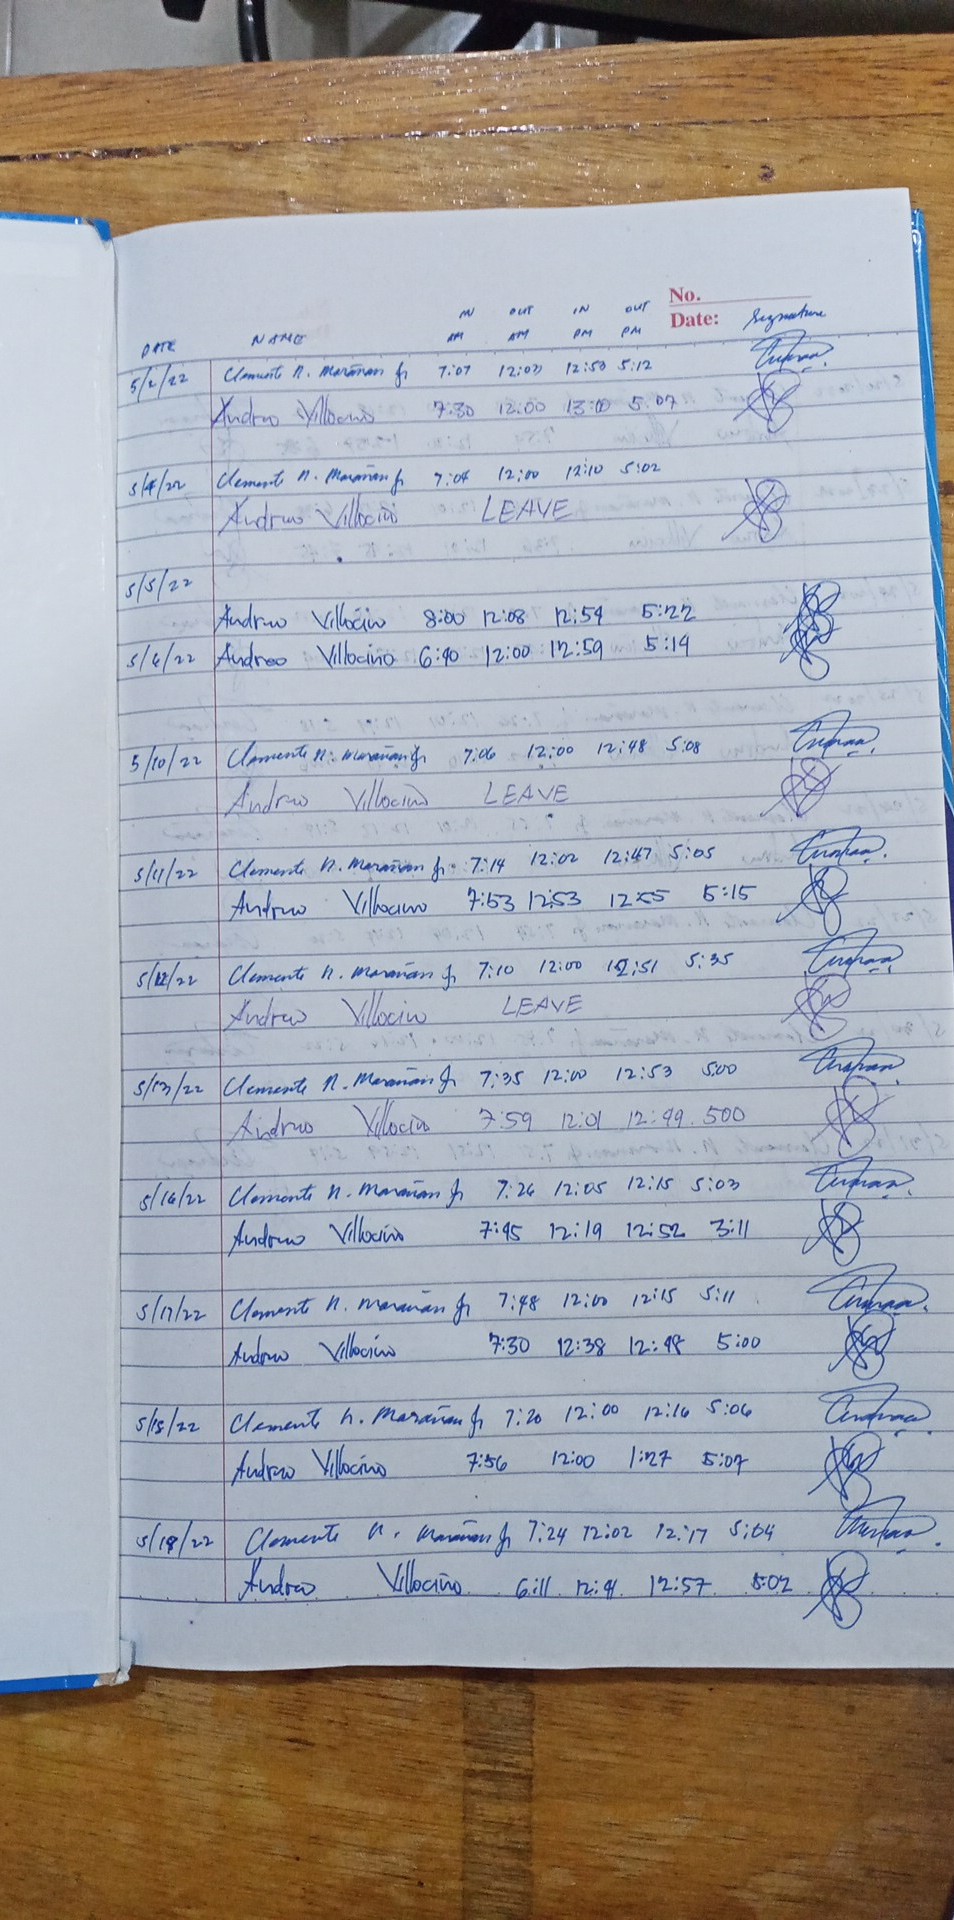 No.
Date:
DATE NAME IN AM OUT AM IN PM OUT PM Signature
5/2/22 Clemente N. Marañan Jr 7:07 12:03 12:50 5:12
Andrew Villocino 7:30 12:00 13:00 5:07
5/4/22 Clemente N. Marañan Jr 7:04 12:00 12:10 5:02
Andrew Villocino LEAVE
5/5/22
Andrew Villocino 8:00 12:08 12:54 5:22
5/6/22 Andreo Villocino 6:40 12:00 12:59 5:14
5/10/22 Clemente N. Marañan Jr 7:06 12:00 12:48 5:08
Andrew Villocino LEAVE
5/11/22 Clemente N. Marañan Jr. 7:14 12:02 12:47 5:05
Andrew Villocino 7:53 12:53 12:55 5:15
5/12/22 Clemente N. Marañan Jr 7:10 12:00 12:51 5:35
Andrew Villocino LEAVE
5/13/22 Clemente N. Marañan Jr 7:35 12:00 12:53 5:00
Andrew Villocino 7:59 12:01 12:49 500
5/16/22 Clemente N. Marañan Jr 7:26 12:05 12:15 5:03
Andrew Villocino 7:45 12:19 12:52 3:11
5/17/22 Clemente N. Marañan Jr 7:48 12:00 12:15 5:11
Andrew Villocino 7:30 12:38 12:48 5:00
5/18/22 Clemente N. Marañan Jr 7:20 12:00 12:16 5:06
Andrew Villocino 7:56 12:00 1:27 5:07
Clemente N. Marañan Jr 7:24 12:02 12:17 5:04
Andrew Villocino 6:11 12:41 12:57 5:02